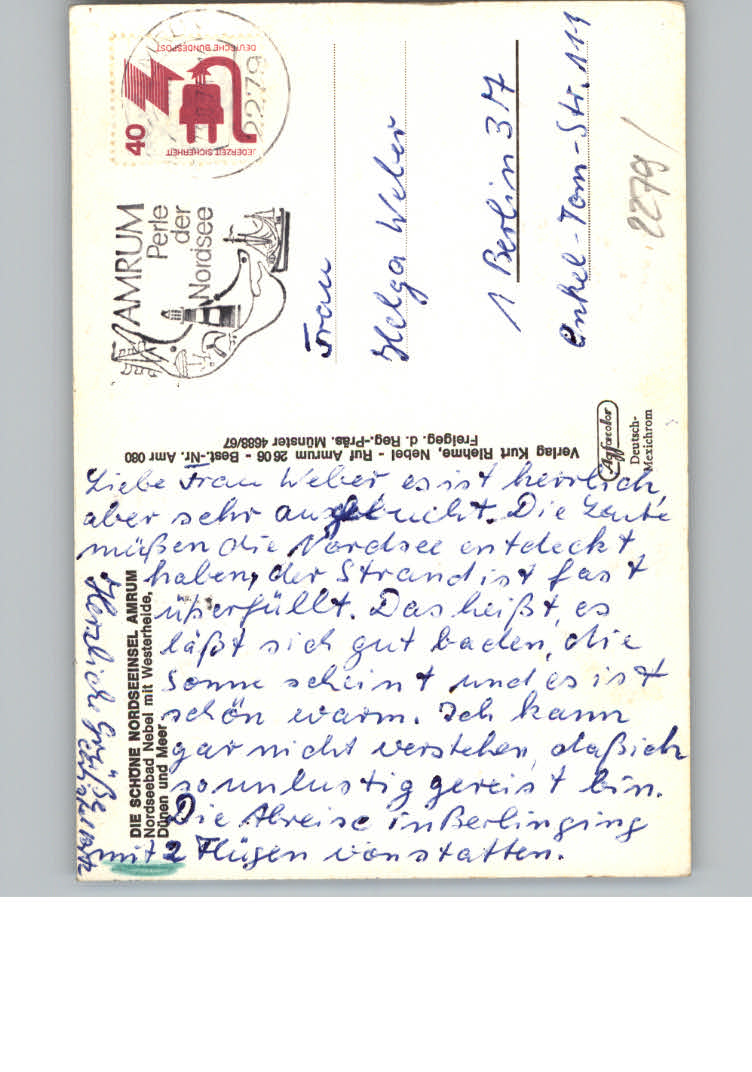 DEUTSCHE BUNDESPOST
40
JEDERZEIT SICHERHEIT
AMRUM
Perle
der
Nordsee
Frau
Helga Weber
1 Berlin 37
Onkel-Tom-Str. 111
2279/
Verlag Kurt Riehme, Nebel - Ruf Amrum 26 06 - Best.-Nr. Amr 080
Freigeg. d. Reg.-Präs. Münster 4688/67
Agfacolor
Deutsch-
Mexichrom
DIE SCHÖNE NORDSEEINSEL AMRUM
Nordseebad Nebel mit Westerheide,
Dünen und Meer
Liebe Frau Weber es ist herrlich,
aber sehr ausgebucht. Die Leute
müßen die Nordsee entdeckt
haben, der Strand ist fast
überfüllt. Das heißt, es
läßt sich gut baden, die
Sonne scheint und es ist
schön warm. Ich kann
gar nicht verstehen, daß ich
so unlustig gereist bin.
Die Abreise in Berlin ging
mit 2 Flügen vonstatten.
Herzliche Grüße